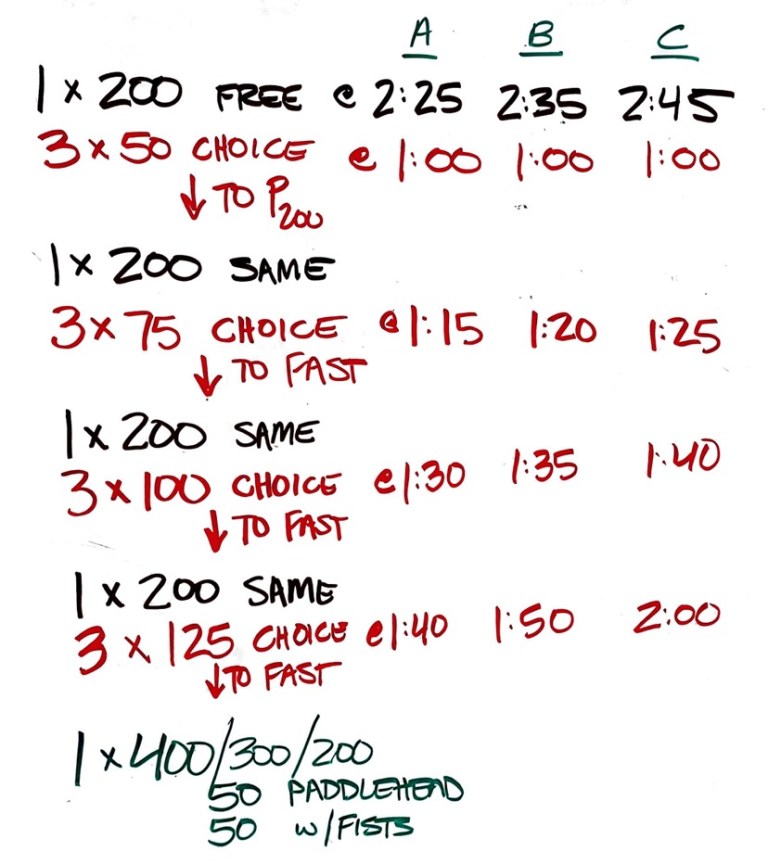 A B C
1 x 200 FREE @ 2:25 2:35 2:45
3 x 50 CHOICE @ 1:00 1:00 1:00
↓ TO P200
1 x 200 SAME
3 x 75 CHOICE @ 1:15 1:20 1:25
↓ TO FAST
1 x 200 SAME
3 x 100 CHOICE @ 1:30 1:35 1:40
↓ TO FAST
1 x 200 SAME
3 x 125 CHOICE @ 1:40 1:50 2:00
↓ TO FAST
1 x 400/300/200
50 PADDLEHEAD
50 w/FISTS